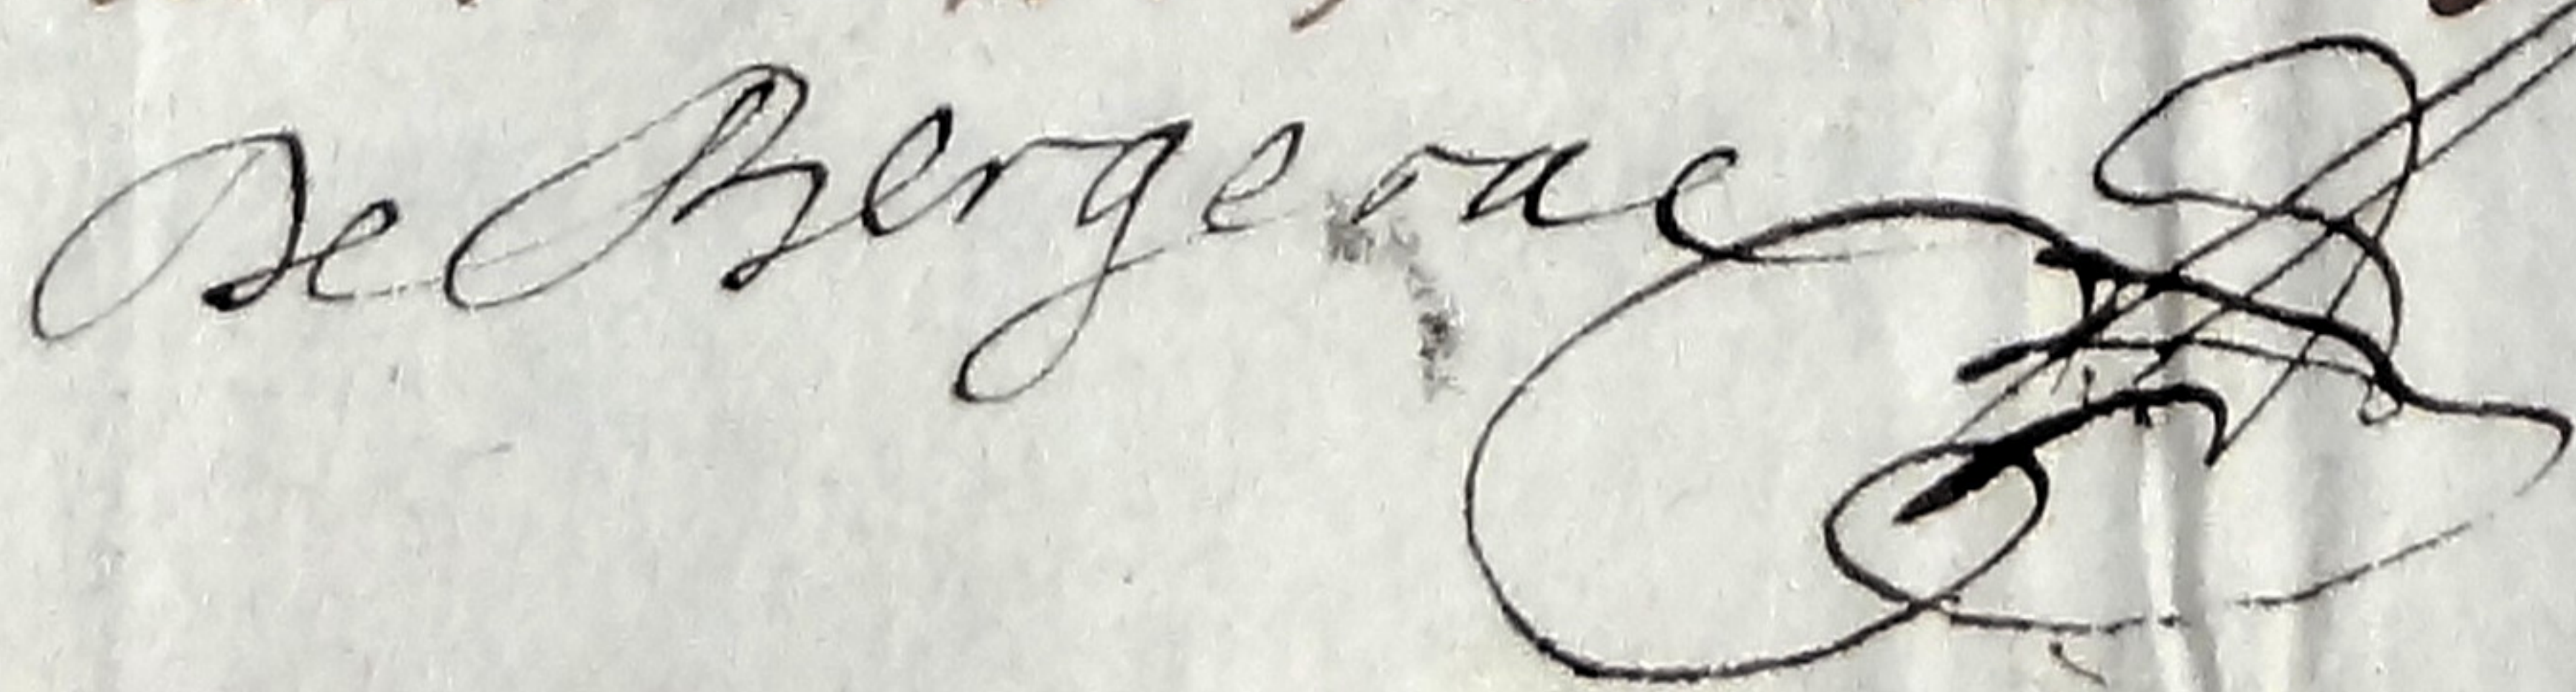 De Bergerac